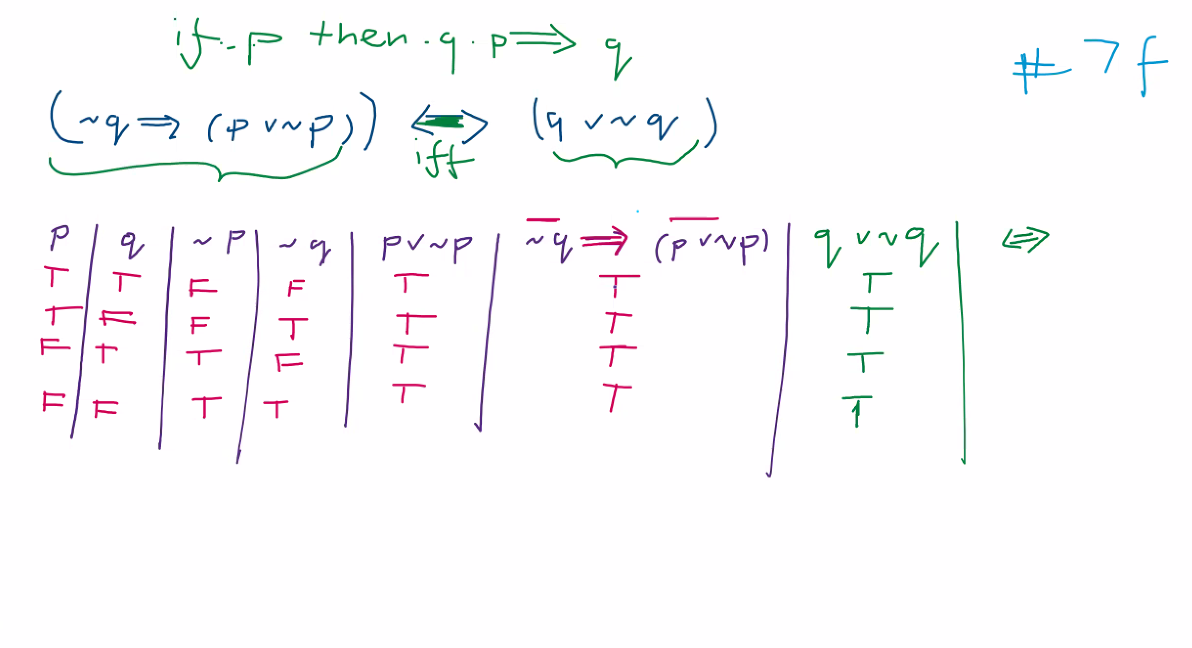 if p then q. p ⟹ q
# 7 f
(~q ⟹ (p ∨ ~p)) ⟺ (q ∨ ~q)
iff
p | q | ~p | ~q | p ∨ ~p | ~q ⟹ (p ∨ ~p) | q ∨ ~q | ⟺
T | T | F | F | T | T | T |
T | F | F | T | T | T | T |
F | T | T | F | T | T | T |
F | F | T | T | T | T | T |